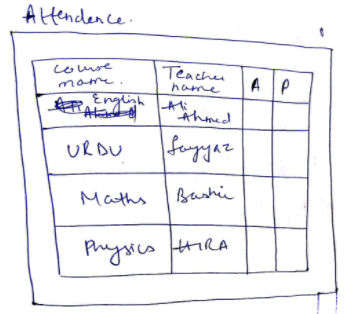 Attendence.
course name. Teacher name A P
English Ali Ahmed
URDU Fayyaz
Maths Bashir
Physics HIRA